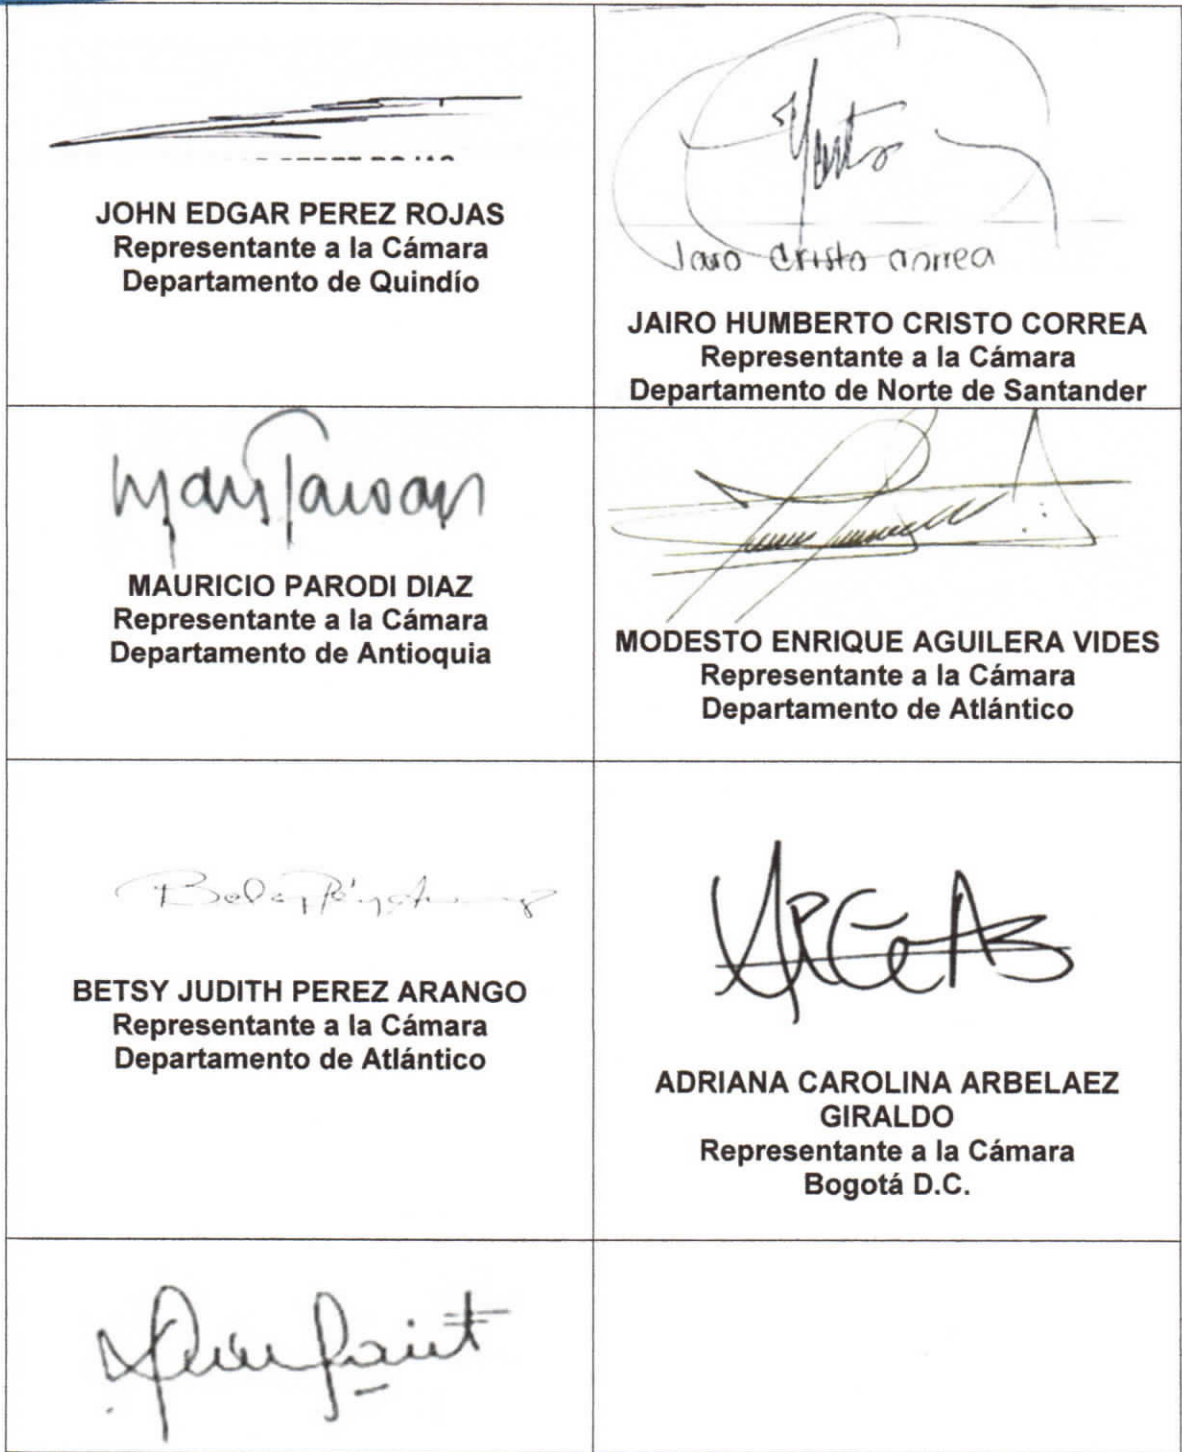 JOHN EDGAR PEREZ ROJAS
Representante a la Cámara
Departamento de Quindío
Jairo Cristo Correa
JAIRO HUMBERTO CRISTO CORREA
Representante a la Cámara
Departamento de Norte de Santander
MAURICIO PARODI DIAZ
Representante a la Cámara
Departamento de Antioquia
MODESTO ENRIQUE AGUILERA VIDES
Representante a la Cámara
Departamento de Atlántico
BETSY JUDITH PEREZ ARANGO
Representante a la Cámara
Departamento de Atlántico
ADRIANA CAROLINA ARBELAEZ
GIRALDO
Representante a la Cámara
Bogotá D.C.